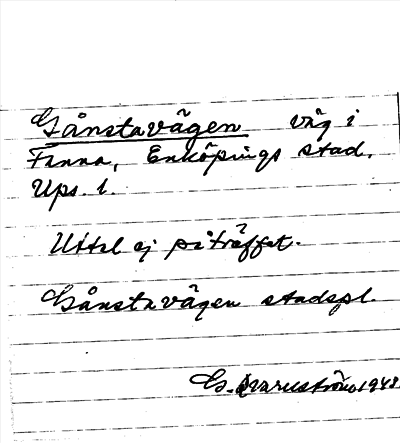 Gånstavägen väg i
Fanna, Enköpings stad,
Ups. l.
Uttal ej påträffat.
Gånstavägen stadspl.
G. Qvarnström 1948